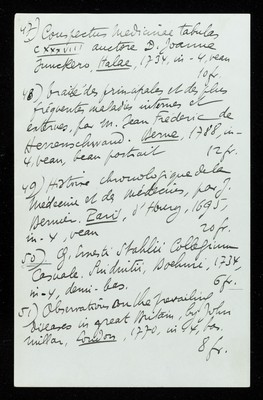 47) Conspectus Medicinae tabulas
CXXXVIII auctore D. Joanne
Junckero, Halae, 1734, in-4, veau
10 fr.
48) Traité des principales et des plus
fréquentes maladies internes et
externes, par M. Jean Frédéric de
Herrenschwand. Berne, 1788, in-
4, veau, beau portrait 12 fr.
49) Histoire chronologique de la
Médecine et des Médecins, par J.
Bernier. Paris, d'Houry, 1695,
in-4, veau 20 fr.
50) G. Ernesti Stahlii Collegium
Casuale. Suidnitii, Boehmi, 1734,
in-4, demi-bas. 6 fr.
51) Observations on the prevailing
Diseases in great Britain, by John
Millar, London, 1770, in-4, bas.
8 fr.